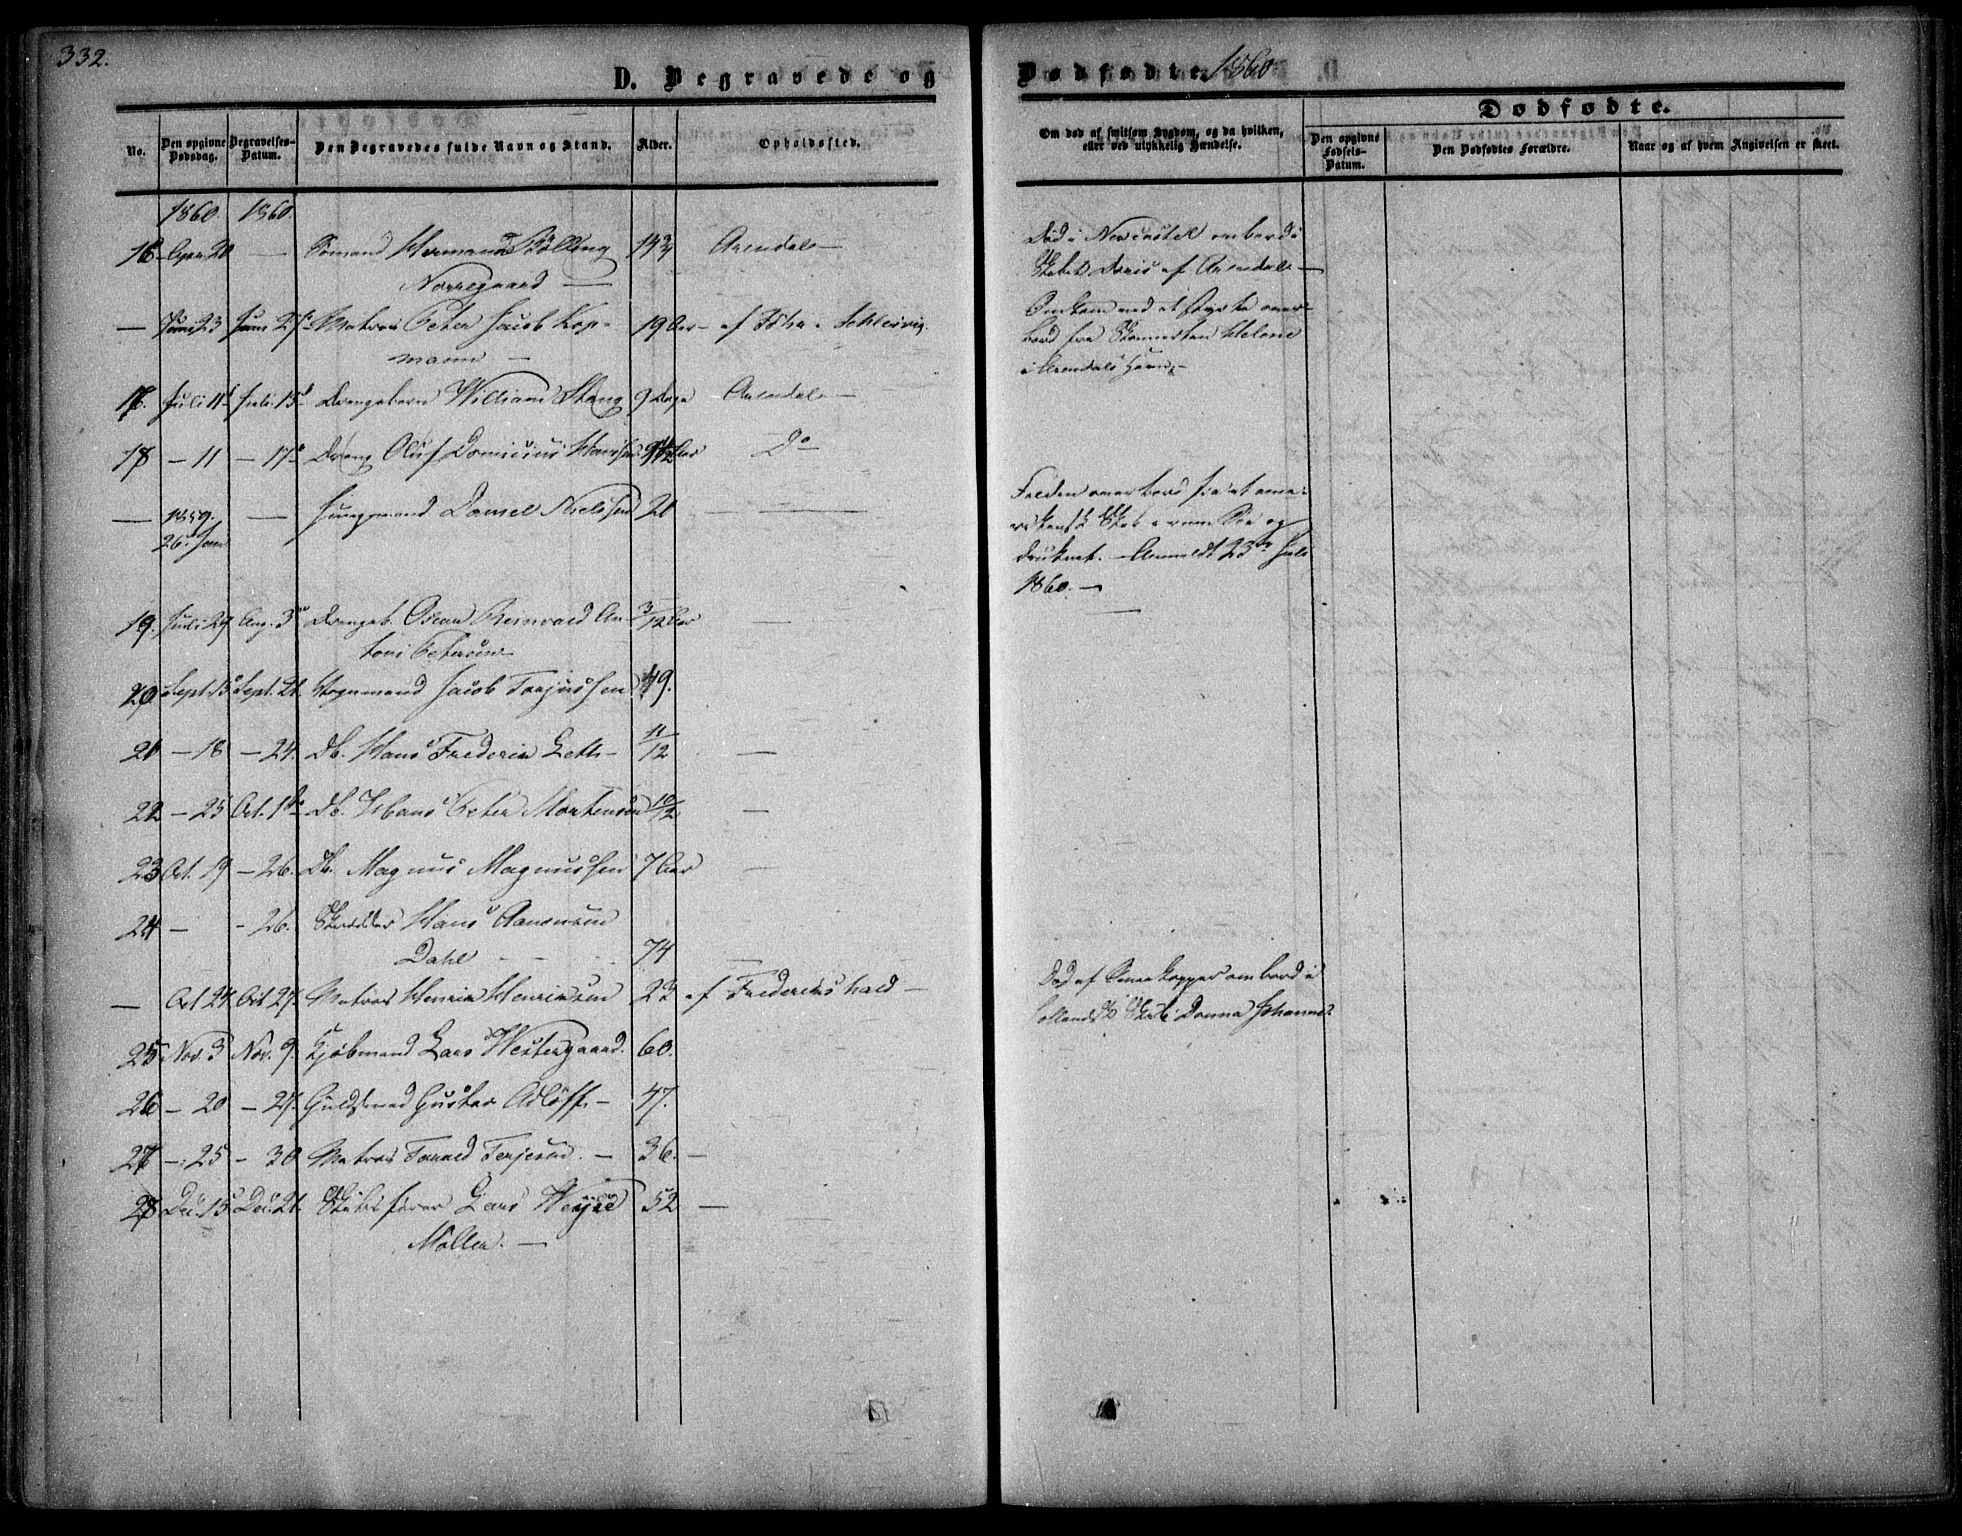 332.
D. Begravede og
Dødfødte. 1860
Dødfødte.
No.
Den opgivne Dødsdag.
Begravelses-Datum.
Den Begravedes fulde Navn og Stand.
Alder.
Opholdssted.
Om død af smitsom Sygdom, og da hvilken,
eller ved ulykkelig Hændelse.
Den opgivne Fødsels-Datum.
Den Dødfødtes Forældre.
Naar og af hvem Angivelsen er skeet.
1860. 1860.
16 20 — Sømand Herman Bølling 14 3/4 Arendal —
Nørregaard —
Død i Newcastel ombord i
Skibet af Arendal —
— Juni 23 Juni 27 Matros Peter Jacob Kop- 19 Aar — af Föhr i Schlesvig.
mann —
Omkom ved at styrte over-
bord fra Skonnerten Helene
i Arendals Havn —
17. Juli 11 Juli 15 Drengebarn William Stang 9 Dage Arendal —
18 — 11 — 17 Dreng Oluf Hansen Aar Do
— 1859. 26 — Jungmand Daniel Nielssen 20 — —
Falden overbord fra et ame-
rikansk Skib i rum Sø og
druknet. — Anmeldt 23de Juli
1860. —
19. Juli 29 Aug. 3 Drengeb. Oscar Reinvald An- 3/12 Aar —
toni Petersen —
20. Sept. 15 Sept. 21. Vognmand Jacob Tarjussen 49.
21 — 18 — 24. Db. Hans Frederik Leth — 11/12 —
22 — 25 Oct. 1 Db. Hans Peter Mortensen 10/12 —
23 Oct. 19 — 26. Db. Magnus Magnussen 7 Aar —
24 — - 26. Skrædder Hans Aanonsen
Dahl — — 74 —
— Oct 24. Oct 27. Matros Henrik Henriksen 23 af Frederikshald —
Død af Børnekopper ombord i
hollandsk Skib Donna Johanna
25 Nov. 3 Nov. 9. Kjøbmand Lars Westergaard. 60.
26 — 20 — 27. Guldsmed Gustav Adløff — 47.
27 — 25 - 30 Matros Tarald Terjesen. — 36. —
28 Dec. 15 Dec. 21. Skibsfører Lars Weyse 52 —
Møller. —